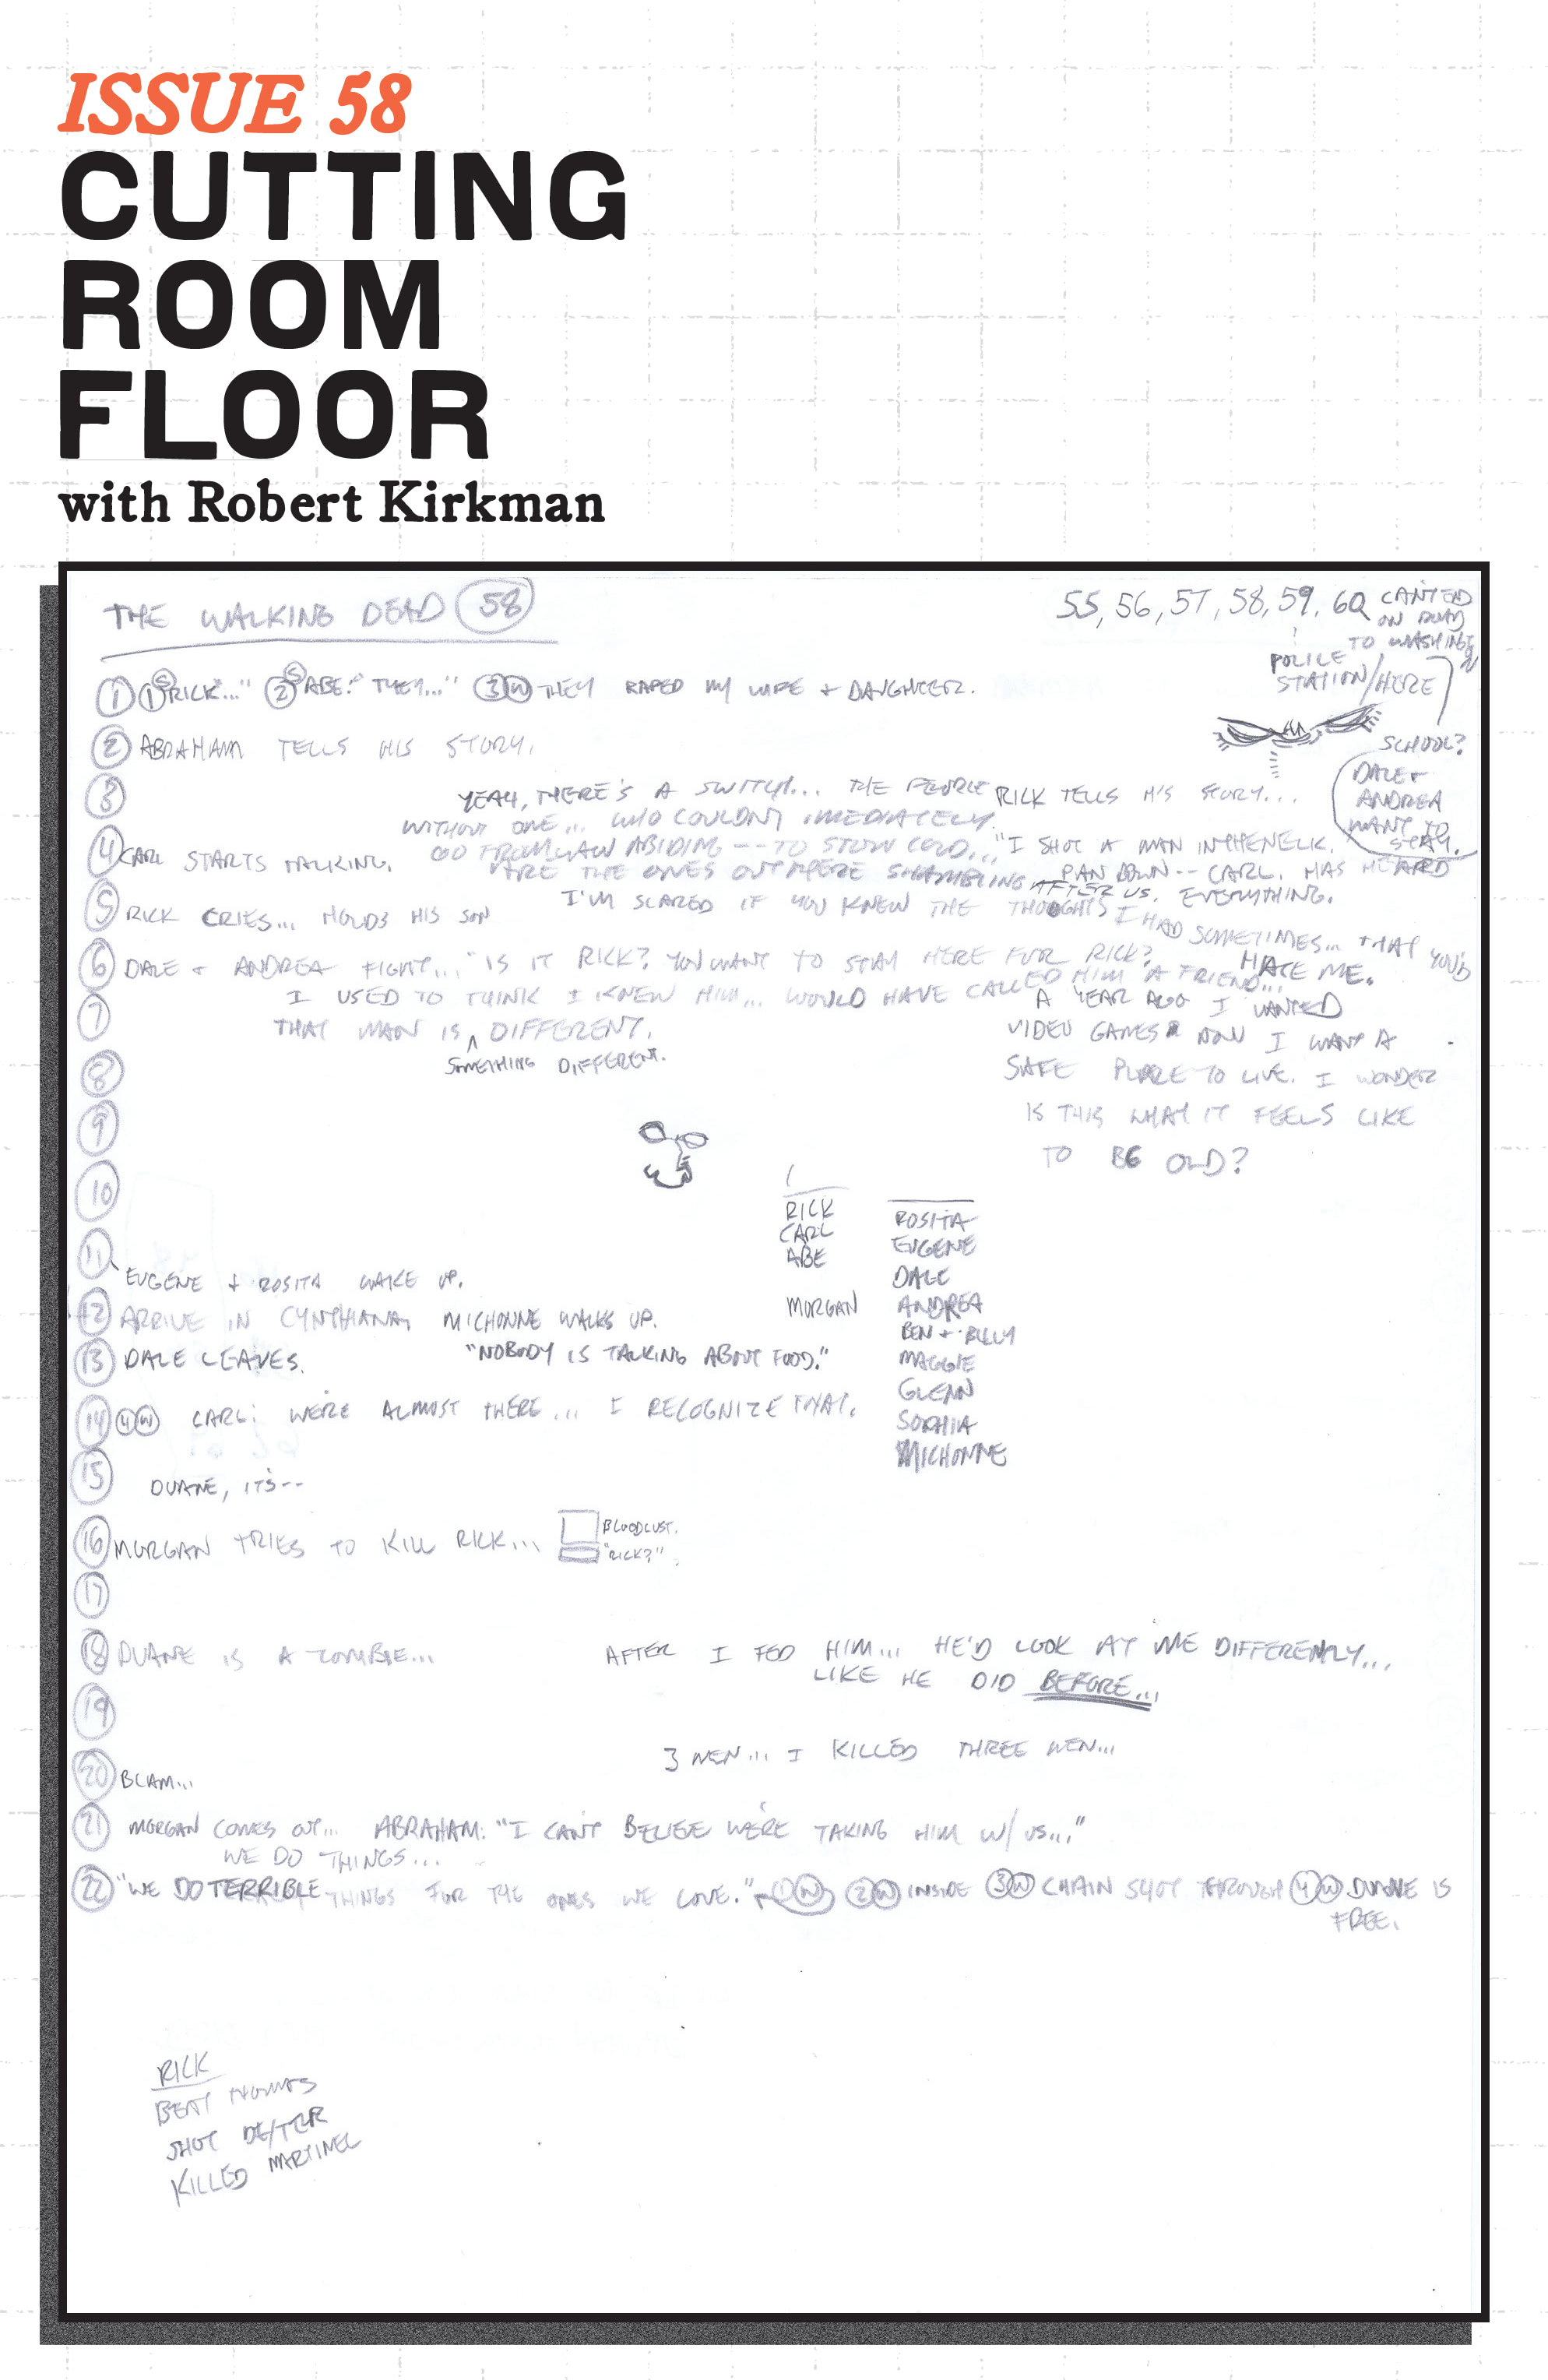 ISSUE 58
CUTTING
ROOM
FLOOR
with Robert Kirkman
THE WALKING DEAD 58
55, 56, 57, 58, 59, 60
CAN'T END
ON ROAD
TO WASHINGTON
POLICE
STATION/HERE
SCHOOL?
DALE +
ANDREA
WANT TO
STAY.
1 1 S RICK..." 2 S ABE: "THEY..." 3 W THEY RAPED MY WIFE + DAUGHTER.
2 ABRAHAM TELLS HIS STORY.
3 RICK TELLS HIS STORY...
YEAH, THERE'S A SWITCH... THE PEOPLE
WITHOUT ONE... WHO COULDN'T IMEDIATELY
GO FROM LAW ABIDING -- TO STONE COLD...
ARE THE ONES OUT THERE SHAMBLING AFTER US.
"I SHOT A MAN IN THE NECK."
PAN DOWN -- CARL. HAS HEARD
EVERYTHING.
4 CARL STARTS TALKING.
5 RICK CRIES... HOLDS HIS SON
I'M SCARED IF YOU KNEW THE THOUGHTS I HAD SOMETIMES... THAT YOU'D
HATE ME.
6 DALE + ANDREA FIGHT... "IS IT RICK? YOU WANT TO STAY HERE FOR RICK?
I USED TO THINK I KNEW HIM... WOULD HAVE CALLED HIM A FRIEND...
7 THAT MAN IS DIFFERENT.
SOMETHING DIFFERENT.
A YEAR AGO I WANTED
VIDEO GAMES NOW I WANT A
SAFE PLACE TO LIVE. I WONDER
IS THIS WHAT IT FEELS LIKE
TO BE OLD?
8
9
10
RICK
CARL
ABE
MORGAN
ROSITA
EUGENE
DALE
ANDREA
BEN + BILLY
MAGGIE
GLENN
SOPHIA
MICHONNE
11 EUGENE + ROSITA WAKE UP.
12 ARRIVE IN CYNTHIANA, MICHONNE WALKS UP.
13 DALE LEAVES. "NOBODY IS TALKING ABOUT FOOD."
14 4 W CARL: WE'RE ALMOST THERE... I RECOGNIZE THAT.
15 DUANE, IT'S--
16 MORGAN TRIES TO KILL RICK... BLOODLUST.
"RICK?"
17
18 DUANE IS A ZOMBIE... AFTER I FED HIM... HE'D LOOK AT ME DIFFERENTLY...
LIKE HE DID BEFORE...
19
3 MEN... I KILLED THREE MEN...
20 BLAM...
21 MORGAN COMES OUT... ABRAHAM: "I CAN'T BELIEVE WE'RE TAKING HIM W/ US..."
WE DO THINGS...
22 "WE DO TERRIBLE THINGS FOR THE ONES WE LOVE." 1 W 2 W INSIDE 3 W CHAIN SHOT THROUGH 4 W DUANE IS
FREE.
RICK
BEAT THOMAS
SHOT DEXTER
KILLED MARTINEZ